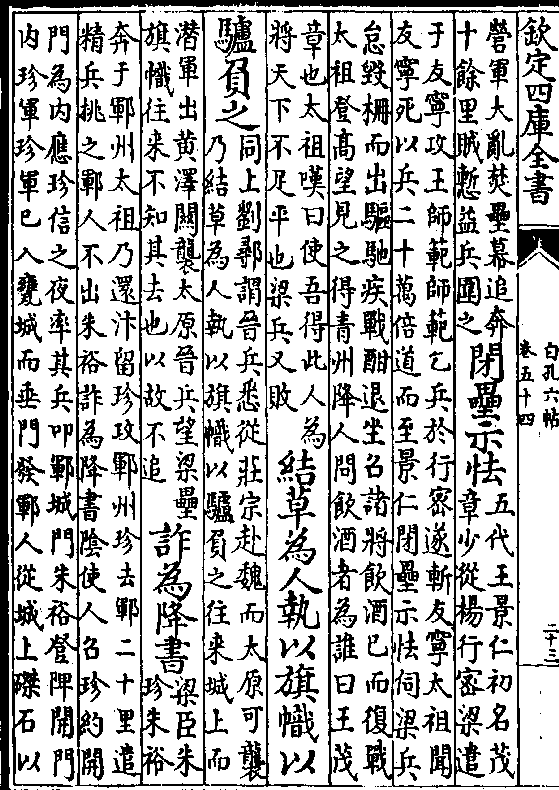 欽定四庫全書
白孔六帖
卷五十四
二十三
營軍大亂焚壘幕追奔
十餘里賊慙益兵圍之
閉壘示怯
五代王景仁初名茂
章少從楊行密梁遣
于友寧攻王師範師範乞兵於行密遂斬友寧太祖聞
友寧死以兵二十萬倍道而至景仁閉壘示怯伺梁兵
怠毁柵而出驅馳疾戰酣退坐召諸將飲酒已而復戰
太祖登高望見之得青州降人問飲酒者為誰曰王茂
章也太祖嘆曰使吾得此人為
將天下不足平也梁兵又敗
結草為人執以旗幟以
驢負之
同上劉鄩謂晉兵悉從莊宗赴魏而太原可襲
乃結草為人執以旗幟以驢負之往來城上而
潛軍出黄澤關襲太原晉兵望梁壘
旗幟往来不知其去也以故不追
詐為降書
梁臣朱
珍朱裕
奔于鄆州太祖乃還汴留珍攻鄆州珍去鄆二十里遣
精兵挑之鄆人不出朱裕詐為降書陰使人召珍約開
門為内應珍信之夜率其兵叩鄆城門朱裕登陴開門
内珍軍珍軍已入甕城而垂門發鄆人從城上磔石以